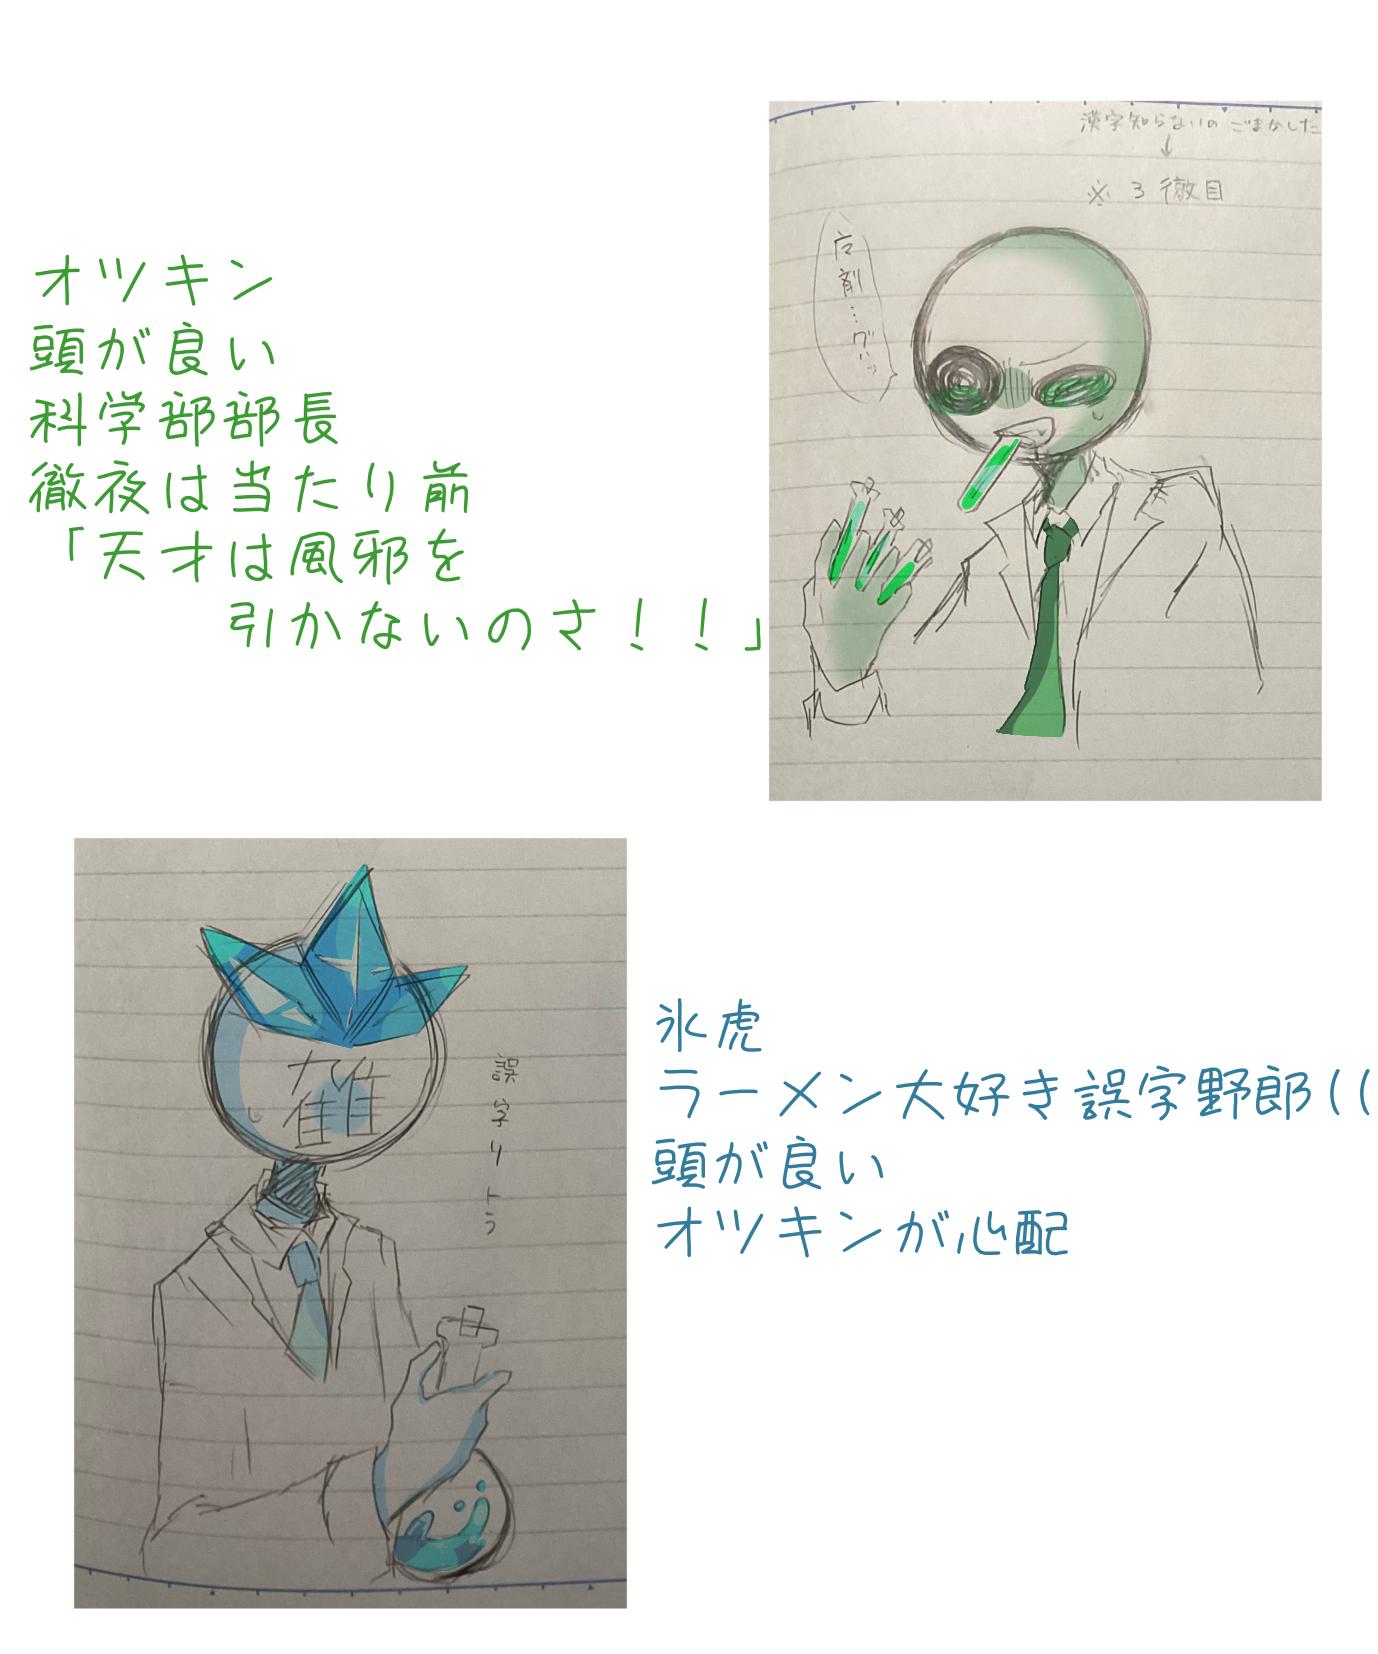 漢字知らないの ごまかした
↓
※ 3徹目
オツキン
頭が良い
科学部部長
徹夜は当たり前
「天才は風邪を
引かないのさ！！」
誤字リトラ
氷虎
ラーメン大好き誤字野郎((
頭が良い
オツキンが心配